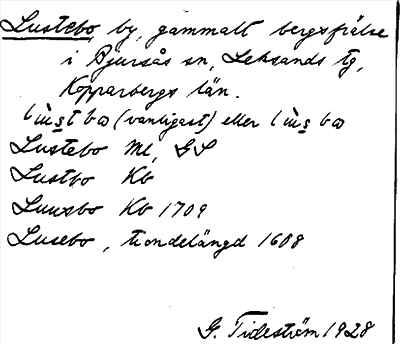 Lustebo, by, gammalt bergsfrälse
i Bjursås sn, Leksands tg,
Kopparbergs län.
lùstbω (vanligast) eller lùsbω
Lustebo Ml, GS
Lustbo Kb
Luusbo Kb 1709
Lusebo, tiondelängd 1608
G. Tideström 1928